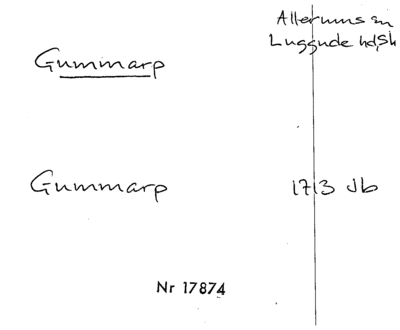 Allerums sn
Luggude hd, Sk
Gummarp
Gummarp 1713 Jb
Nr 17874